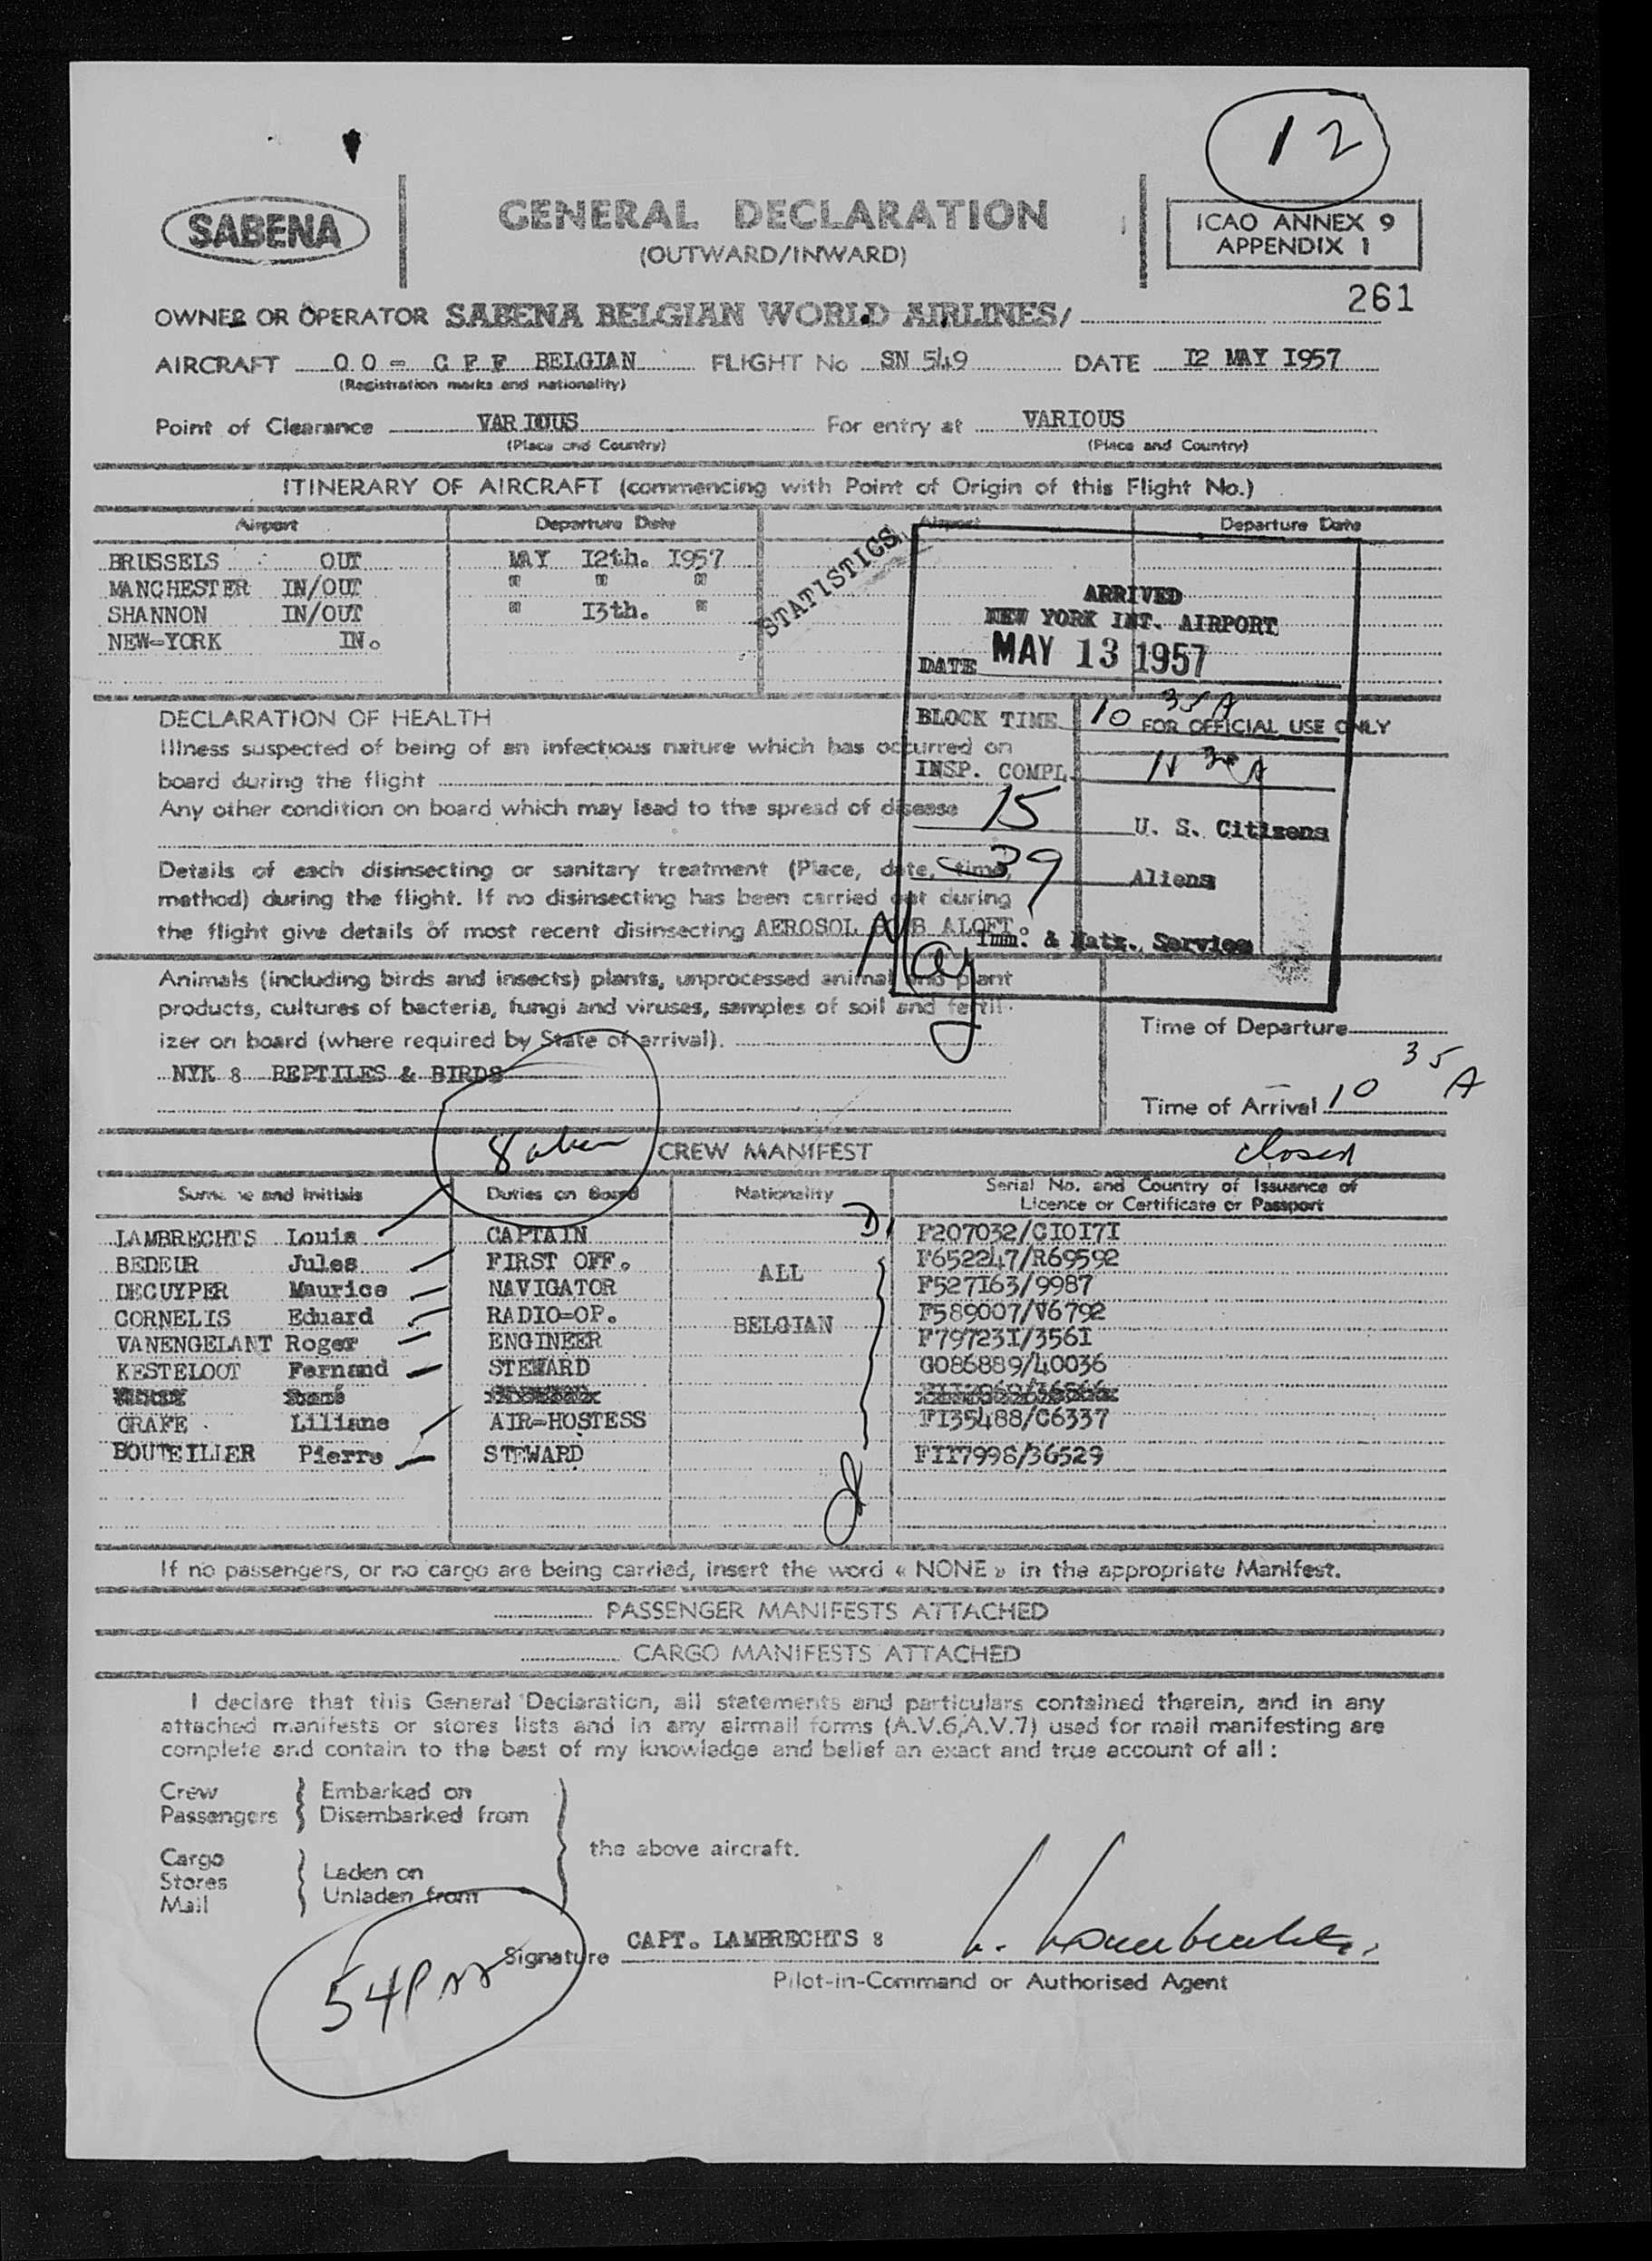 12
SABENA
GENERAL DECLARATION
(OUTWARD/INWARD)
ICAO ANNEX 9
APPENDIX 1
261
OWNER OR OPERATOR SABENA BELGIAN WORLD AIRLINES/
AIRCRAFT OO - C F F BELGIAN FLIGHT No SN 549 DATE I2 MAY I957
(Registration marks and nationality)
Point of Clearance VARIOUS For entry at VARIOUS
(Place and Country) (Place and Country)
ITINERARY OF AIRCRAFT (commencing with Point of Origin of this Flight No.)
Airport Departure Date Airport Departure Date
BRUSSELS OUT MAY I2th. I957
MANCHESTER IN/OUT " " "
SHANNON IN/OUT " I3th. "
NEW-YORK IN.
STATISTICS
ARRIVED
NEW YORK INT. AIRPORT
DATE MAY 13 1957
BLOCK TIME 10 35 A
INSP. COMPL.
15 U. S. Citizens
39 Aliens
Imm. & Natz. Service
DECLARATION OF HEALTH
FOR OFFICIAL USE ONLY
Illness suspected of being of an infectious nature which has occurred on
board during the flight
Any other condition on board which may lead to the spread of disease
Details of each disinsecting or sanitary treatment (Place, date, time,
method) during the flight. If no disinsecting has been carried out during
the flight give details of most recent disinsecting AEROSOL BOMB ALOFT.
Animals (including birds and insects) plants, unprocessed animal and plant
products, cultures of bacteria, fungi and viruses, samples of soil and fertil-
izer on board (where required by State of arrival).
NYK : REPTILES & BIRDS
Time of Departure
Time of Arrival 10 35 A
CREW MANIFEST
closed
Surname and Initials Duties on Board Nationality Serial No. and Country of Issuance of
Licence or Certificate or Passport
LAMBRECHTS Louis CAPTAIN F207032/CI0I7I
BEDEUR Jules FIRST OFF. F652247/R69592
DECUYPER Maurice NAVIGATOR ALL F527I63/9987
CORNELIS Eduard RADIO-OP. F589007/V6792
VANENGELANT Roger ENGINEER BELGIAN F79723I/356I
KESTELOOT Fernand STEWARD G086889/40036
GRAFE Liliane AIR-HOSTESS FI35488/C6337
BOUTEILLER Pierre STEWARD FII7998/36529
If no passengers, or no cargo are being carried, insert the word « NONE » in the appropriate Manifest.
PASSENGER MANIFESTS ATTACHED
CARGO MANIFESTS ATTACHED
I declare that this General Declaration, all statements and particulars contained therein, and in any
attached manifests or stores lists and in any airmail forms (A.V.6,A.V.7) used for mail manifesting are
complete and contain to the best of my knowledge and belief an exact and true account of all :
Crew Embarked on
Passengers Disembarked from
the above aircraft.
Cargo
Stores Laden on
Mail Unladen from
Signature CAPT. LAMBRECHTS : L. Lambrechts
Pilot-in-Command or Authorised Agent
54